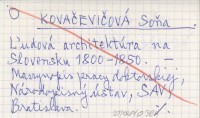 KOVAČEVIČOVÁ Soňa
Ľudová architektúra na
Slovensku 1800-1850. —
Manuskript práce doktorskej,
Národopisný ústav, SAV,
Bratislava.